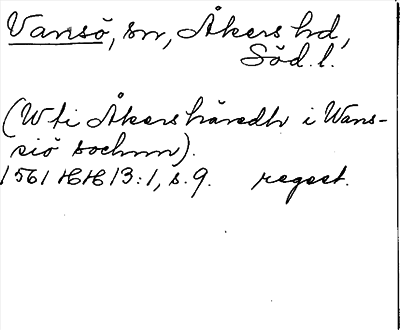 Vansö, sn, Åkers hd,
Söd. l.
(Wti Åkershäredh i Wans-
siö sochnn).
1561 HH 13:1, s. 9. regest.